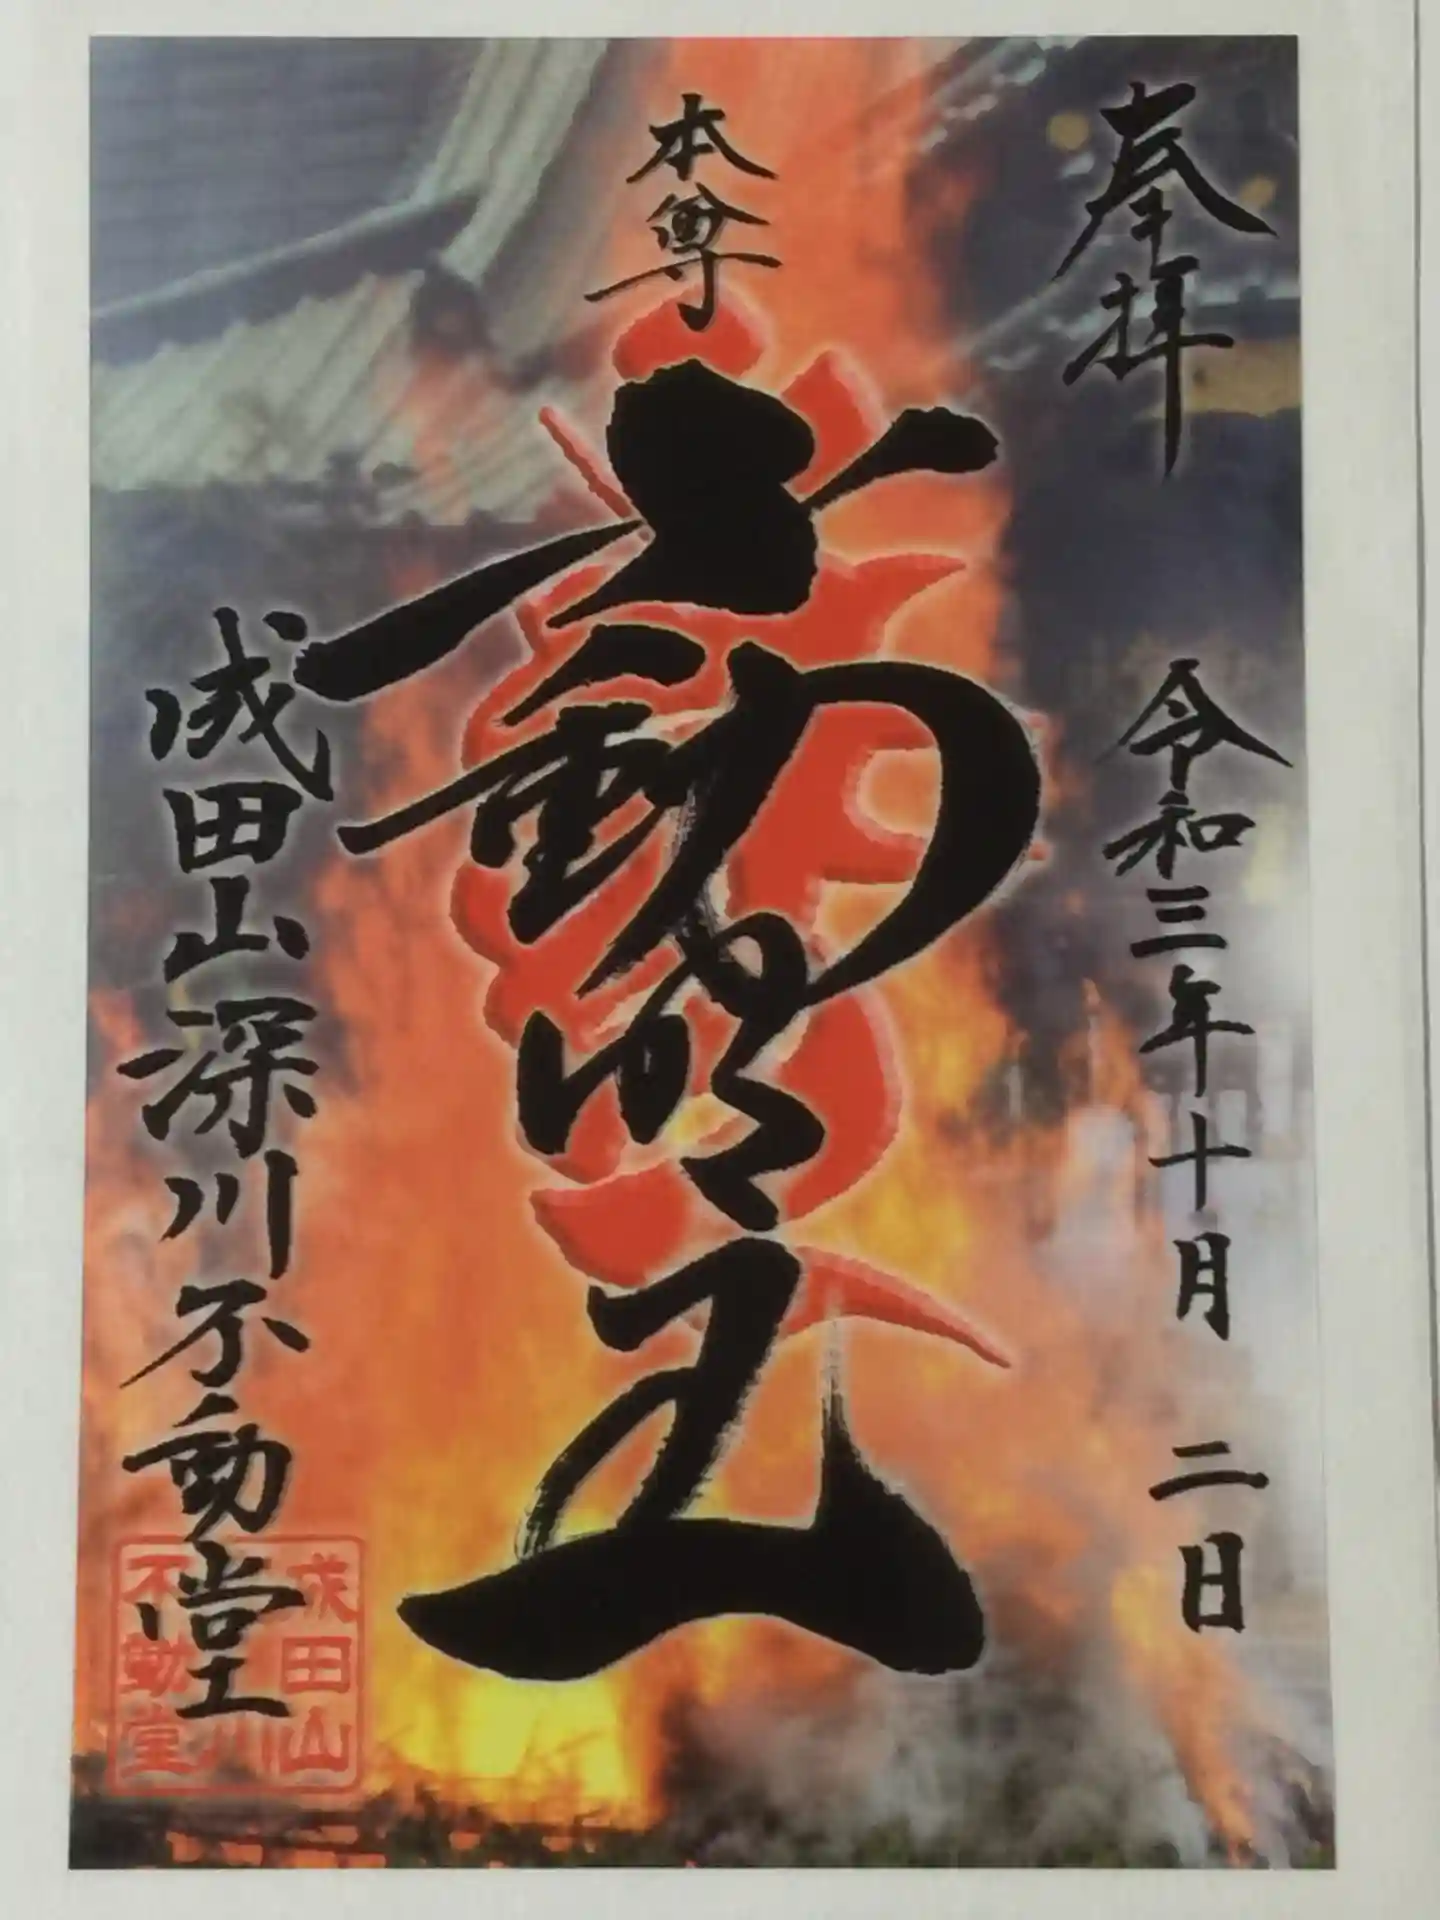 奉拝
令和三年十月 二日
本尊
不動明王
成田山深川不動堂
成田山
川
不動堂